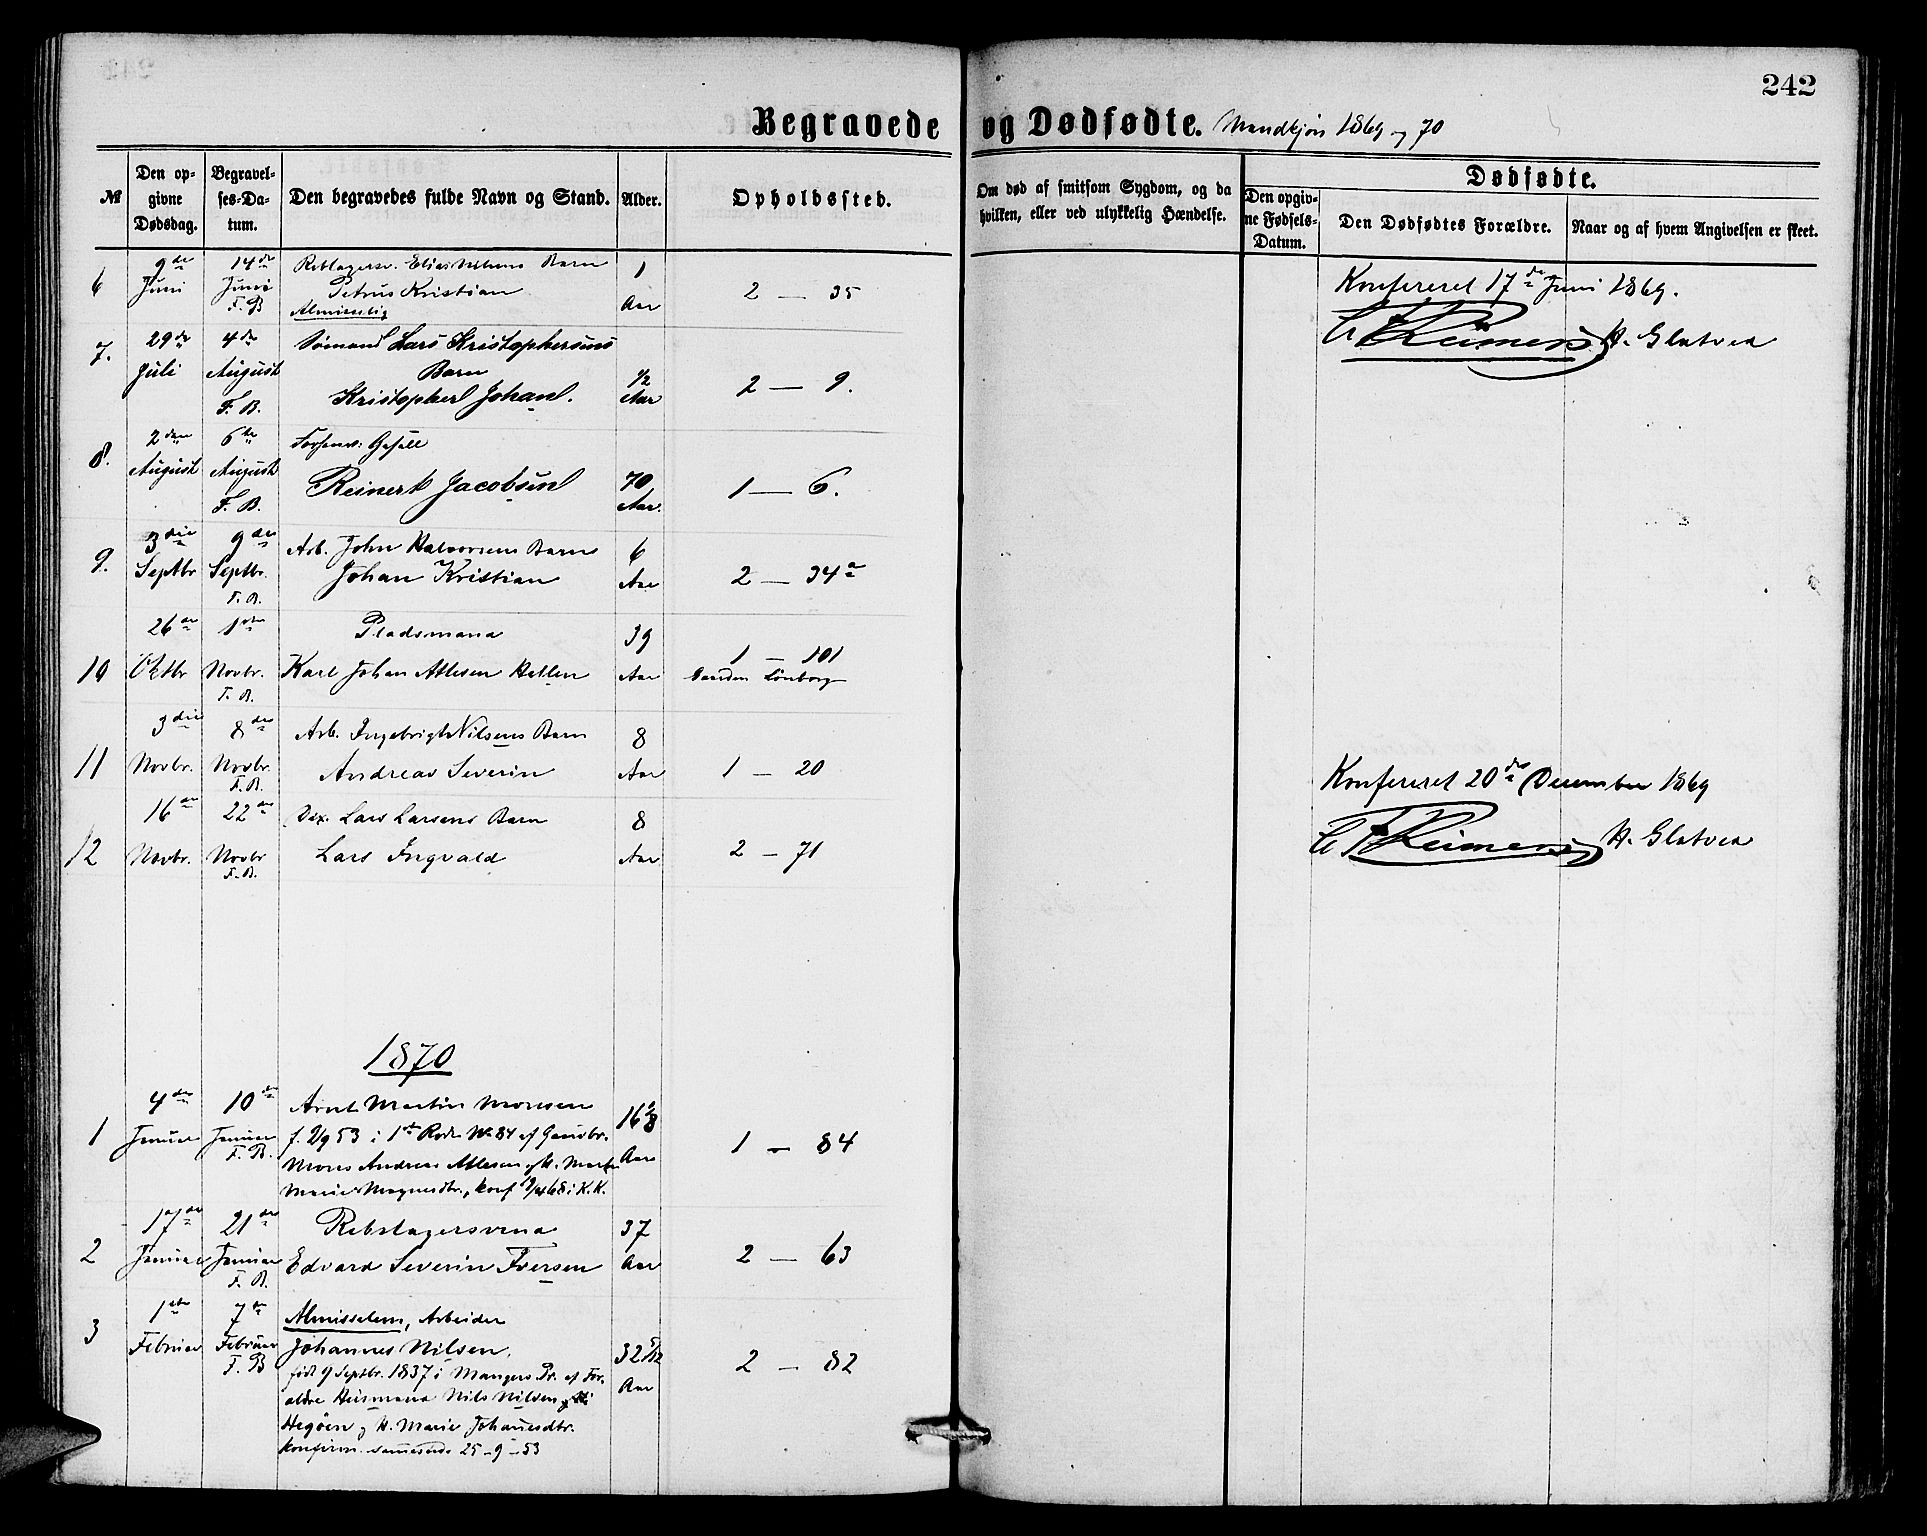 242
Begravede og Dødfødte. Mandkjøn 1869 og 70
№
Den opgivne Dødsdag.
Begravelses-Datum.
Den begravedes fulde Navn og Stand.
Alder.
Opholdssted.
Om død af smitsom Sygdom, og da hvilken, eller ved ulykkelig Hændelse.
Dødfødte.
Den opgivne Fødsels-Datum.
Den Dødfødtes Forældre.
Naar og af hvem Angivelsen er skeet.
6 9de 14de Barn 1
Juni Juni Petrus Kristian Aar 2 — 35
F. B.
Konfereret 17de Juni 1869.
C F Reimers H. Glatved
7. 29de 4de Sømand Lars Kristophersens
Juli August Barn 1/2
F. B. Kristopher Johan. Aar 2 — 9.
8. 2den 6te
August August Reinert Jacobsen 70 1 — 6.
F. B. Aar
9. 3die 9de Arb. John Halvorsens Barn 6
Septbr Septbr. Johan Kristian Aar 2 — 34a
F. B.
26de 1ste Pladsmand 39 1 — 101
10 Oktbr Novbr. Karl Johan Atlesen Hatlen Aar
F. B.
3die 8de Arb. Ingebrigt Nilsens Barn 8
11 Novbr. Novbr. Andreas Severin Aar 1 — 20
F. B.
16de 22de Lars Larsens Barn 8
12 Novbr. Novbr Lars Ingvald Aar 2 — 71
F. B.
Konfereret 20de December 1869
C F Reimers H. Glatved
1870
4de 10de Arnt Martin Monsen
1 Januar Januar f. 2/9 53 i 1ste Rode № 84 af 16 Aar 1 — 84
F. B. Mons Andreas Atlesen og H. Marte
Marie Magnesdtr., konf i K. K.
17de 21de Rebslagersvend 37
2 Januar Januar Edvard Severin Iversen Aar 2 — 63
F. B.
1ste 7de Almisselem, Arbeider
3 Februar Februar Johannes Nilsen, 32 5/12 2 — 82
F. B født 9 Septbr. 1837 i Mangers Pr. af For- Aar
ældre Husmand Nils Nilsen
Hegøen og H. Marie Johannesdtr.
konfirm. sammesteds 25-9-53